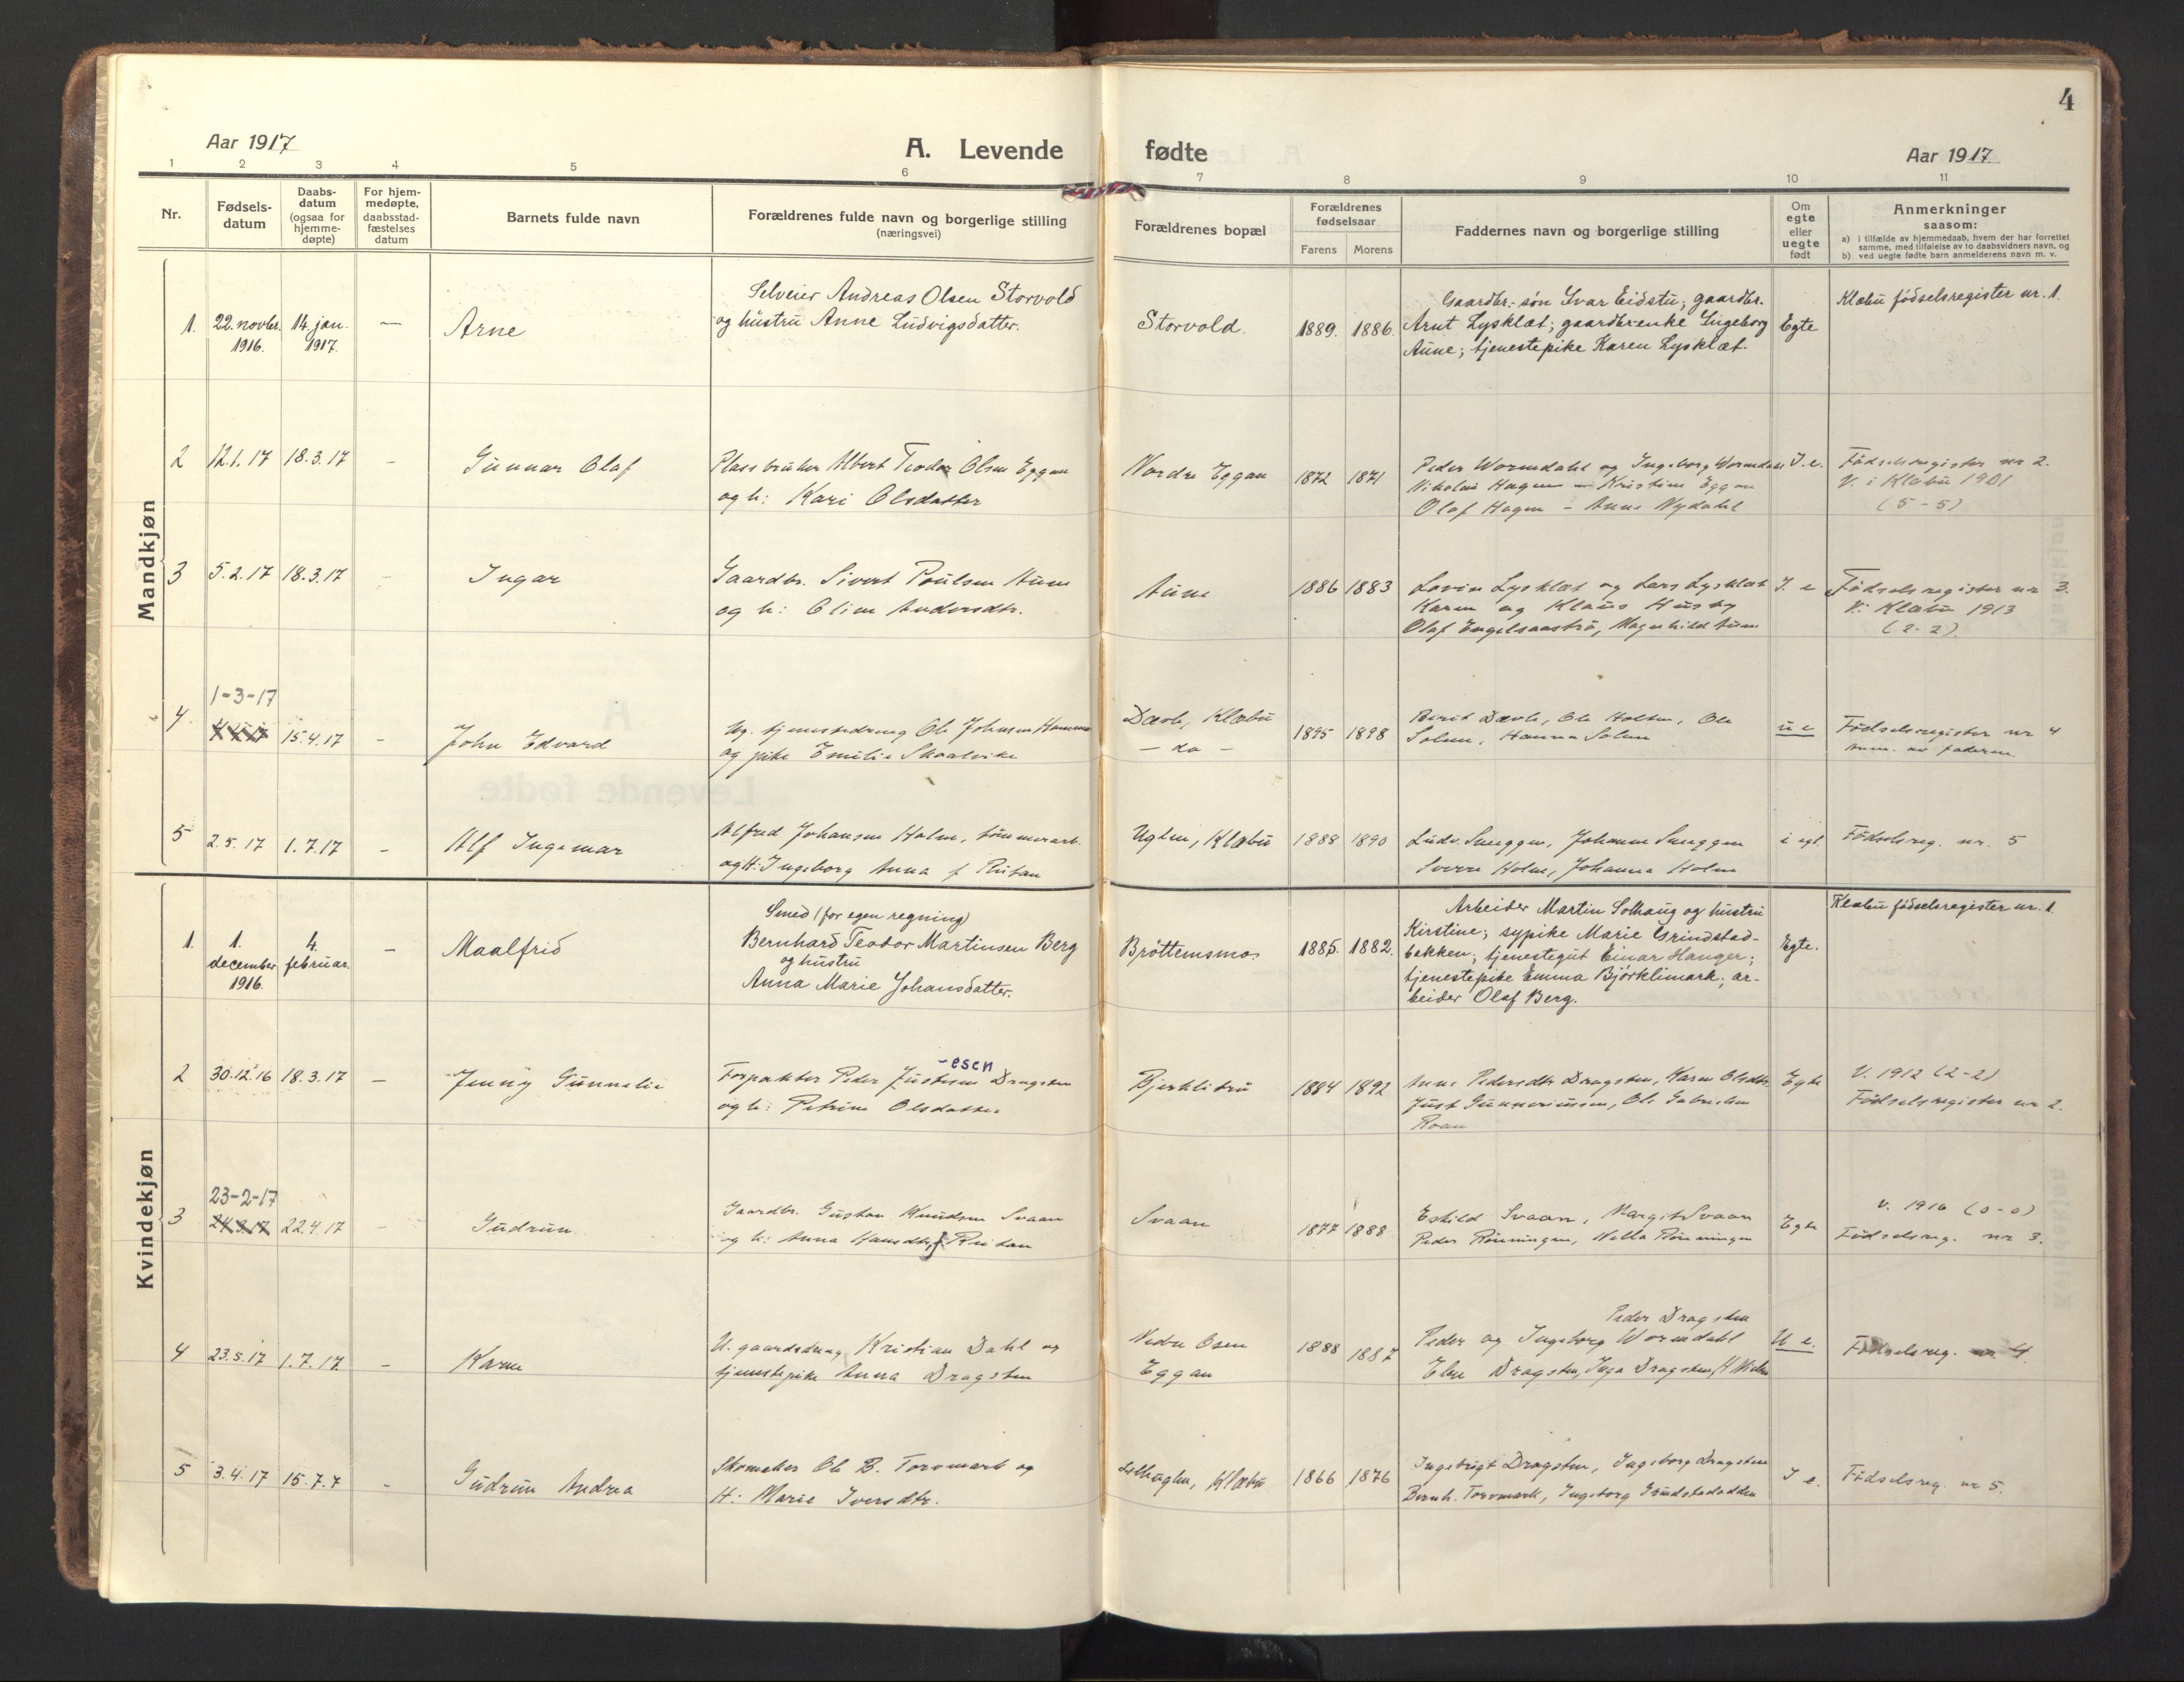 4
Aar 1917
A. Levende fødte
Aar 1917
1 2 3 4 5 6 7 8 9 10 11
Nr.
Fødsels-
datum
Daabs-
datum
(ogsaa for
hjemme-
døpte)
For hjem-
medøpte,
daabsstad-
fæstelses
datum
Barnets fulde navn
Forældrenes fulde navn og borgerlige stilling
(næringsvei)
Forældrenes bopæl
Forældrenes
fødselsaar
Farens Morens
Faddernes navn og borgerlige stilling
Om
egte
eller
uegte
født
Anmerkninger
saasom:
a) i tilfælde av hjemmedaab, hvem der har forrettet
samme, med tilføielse av to daabsvidners navn, og
b) ved uegte fødte barn anmelderens navn m. v.
Mandkjøn
1. 22. novbr. 1916. 14. jan. 1917. — Arne
Selveier Andreas Olsen Storvold
og hustru Anne Ludvigsdatter.
Storvold. 1889. 1886.
Gaardbr.-søn Ivar Eidstu; gaardbr.
Arnt Lysklæt; gaardbr-enke Ingeborg
Aune; tjenestepike Karen Lysklæt.
Egte
Klæbu fødselsregister nr. 1.
2 12.1.17 18.3.17 - Gunnar Olaf
Plassbruker Albert Teodor Olsen Eggen
og h: Kari Olsdatter
Nordre Eggan 1872 1871
Peder Wormdahl og Ingeborg Wormdahl
Nikolai Hagen - Kristine Eggan
Olaf Hagen - Anne Nydahl
I. e.
Fødselsregister nr 2.
V. i Klæbu 1901
(5-5)
3 5.2.17 18.3.17 - Ingar
Gaardbr. Sivert Poulsen Aune
og h: Oline Andersdtr.
Aune 1886 1883
Lovise Lysklæt og Lars Lysklæt
Karen og Klaus Husby
Olaf Engelsaastrø, Magnhild Aune
I. e
Fødselsregister nr 3.
V. Klæbu 1913
(2-2)
4. 1-3-17 15.4.17 - John Edvard
Ug. tjenestedreng Ole Johnsen Hammer
og pike Emilie Skaalvike
Dævle, Klæbu
— do —
1895 1898
Berit Dævle, Ole Holten, Ole
Solem, Hanna Solem
u e
Fødselsregister nr 4
Anm. av faderen.
5 2.5.17 1.7.17 - Alf Ingemar
Alfred Johansen Holm, tømmerarb.
og H: Ingeborg Anna f Rutan
Uglen, Klæbu 1888 1890
Ludv. Sneggen, Johanne Sneggen
Sverre Holm, Johanna Holm
i egt.
Fødselsreg. nr. 5
Kvindekjøn
1. 1. december 1916. 4. februar. - Maalfrid
Smed (for egen regning)
Bernhard Teodor Martinsen Berg
og hustru
Anna Marie Johansdatter.
Brøttemsmo. 1885. 1882.
Arbeider Martin Solhaug og hustru
Kirstine; sypike Marie Grindstad-
bekken; tjenestegut Einar Hanger;
tjenestepike Emma Bjørklimark; ar-
beider Olaf Berg.
Egte.
Klæbu fødselsregister nr. 1.
2 30.12.16 18.3.17 — Jenny Gunnelie
-esen
Forpakter Peder Justesen Dragsten
og h: Petrine Olsdatter
Bjerklitrø 1884 1892
Anne Pedersdtr Dragsten, Karen Olsdtr.
Just Gunneriussen, Ole Gabrielsen
Roan
Egte
V. 1912 (2-2)
Fødselsregister nr 2.
3 23-2-17 22.4.17 - Gudrun
Gaardbr. Gustav Knudsen Svaan
og h: Anna Hansdtr, f. Rutan
Svaan 1877 1888
Eskild Svaan, Margit Svaan
Peder Rønningen, Nella Rønningen
Egte
v. 1916 (0-0)
Fødselsreg. nr 3.
4 23.5.17 1.7.17 - Karen
U. gaardsdreng Kristian Dahl og
tjenestepike Anna Dragsten
Nedre Osen
Eggan
1888 1887
Peder Dragsten
Peder og Ingeborg Wormdahl
Elen Dragsten, Inga Dragsten,
U e.
Fødselsreg. nr. 4.
5 3.4.17 15.7.7 - Gudrun Andrea
Skomaker Ole B. Torvmark og
H: Marie Iversdtr.
Lilleuglen, Klæbu 1866 1876
Ingebrigt Dragsten, Ingeborg Dragsten
Bernh. Torvmark, Ingeborg Grindstadadden
I e.
Fødselsreg. nr 5.